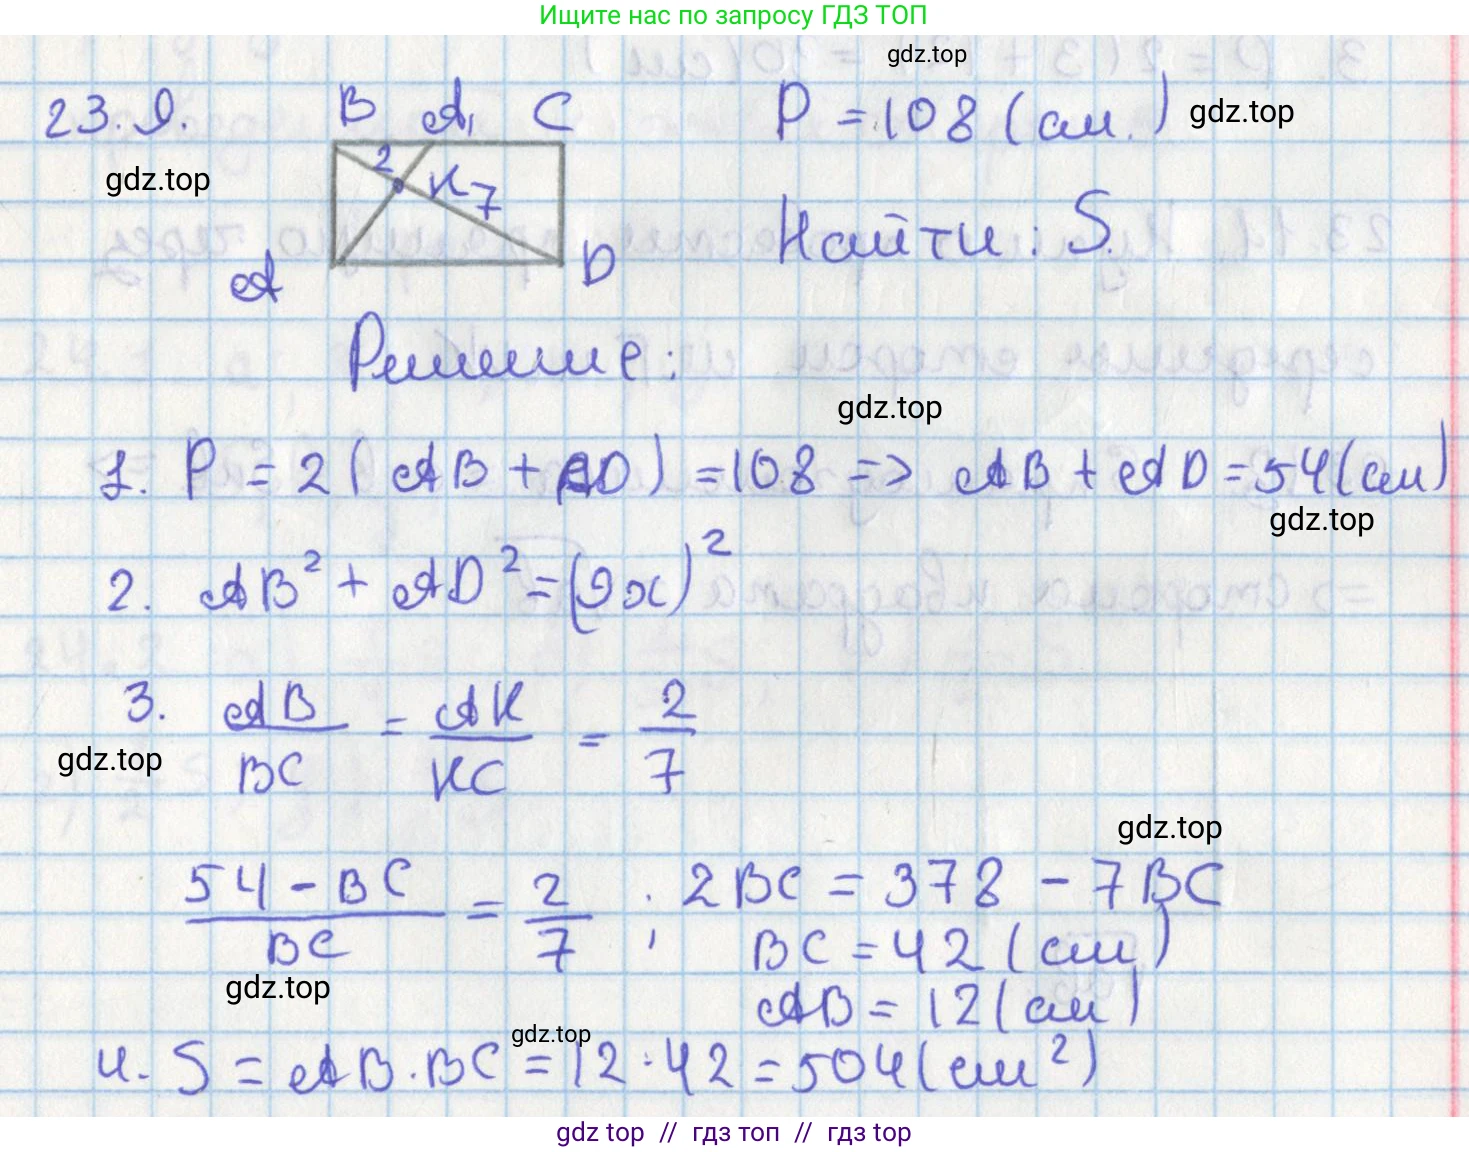 Ищите нас по запросу ГДЗ ТОП
gdz.top
23.9. B A₁ C P = 108 (см.) gdz.top
gdz.top 2 K 7
Найти: S.
A D
Решение:
gdz.top
1. P = 2(AB + AD) = 108 => AB + AD = 54(см)
gdz.top
2. AB² + AD² = (9x)²
3. AB/BC = AK/KC = 2/7
gdz.top
gdz.top
54 - BC/BC = 2/7; 2BC = 378 - 7BC
BC = 42 (см)
gdz.top
AB = 12 (см)
gdz.top
4. S = AB · BC = 12 · 42 = 504 (см²)
gdz top // гдз топ // гдз top